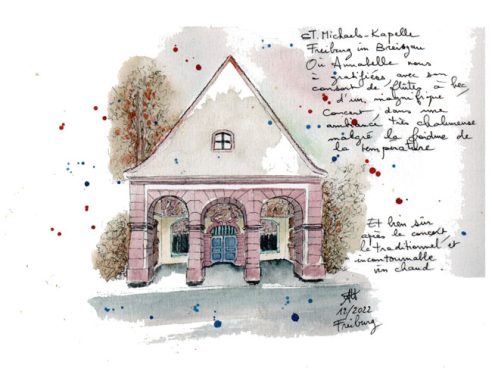 ST. Michaels-Kapelle
Freiburg im Breisgau
Où Annabelle nous
à gratifiées, avec son
consort de flûtes à bec
d'un magnifique
Concert dans une
ambiance très chaleureuse
malgré la froidure de
la température
Et bien sûr
après le concert
le traditionnel et
incontournable
vin chaud.
12/2022
Freiburg